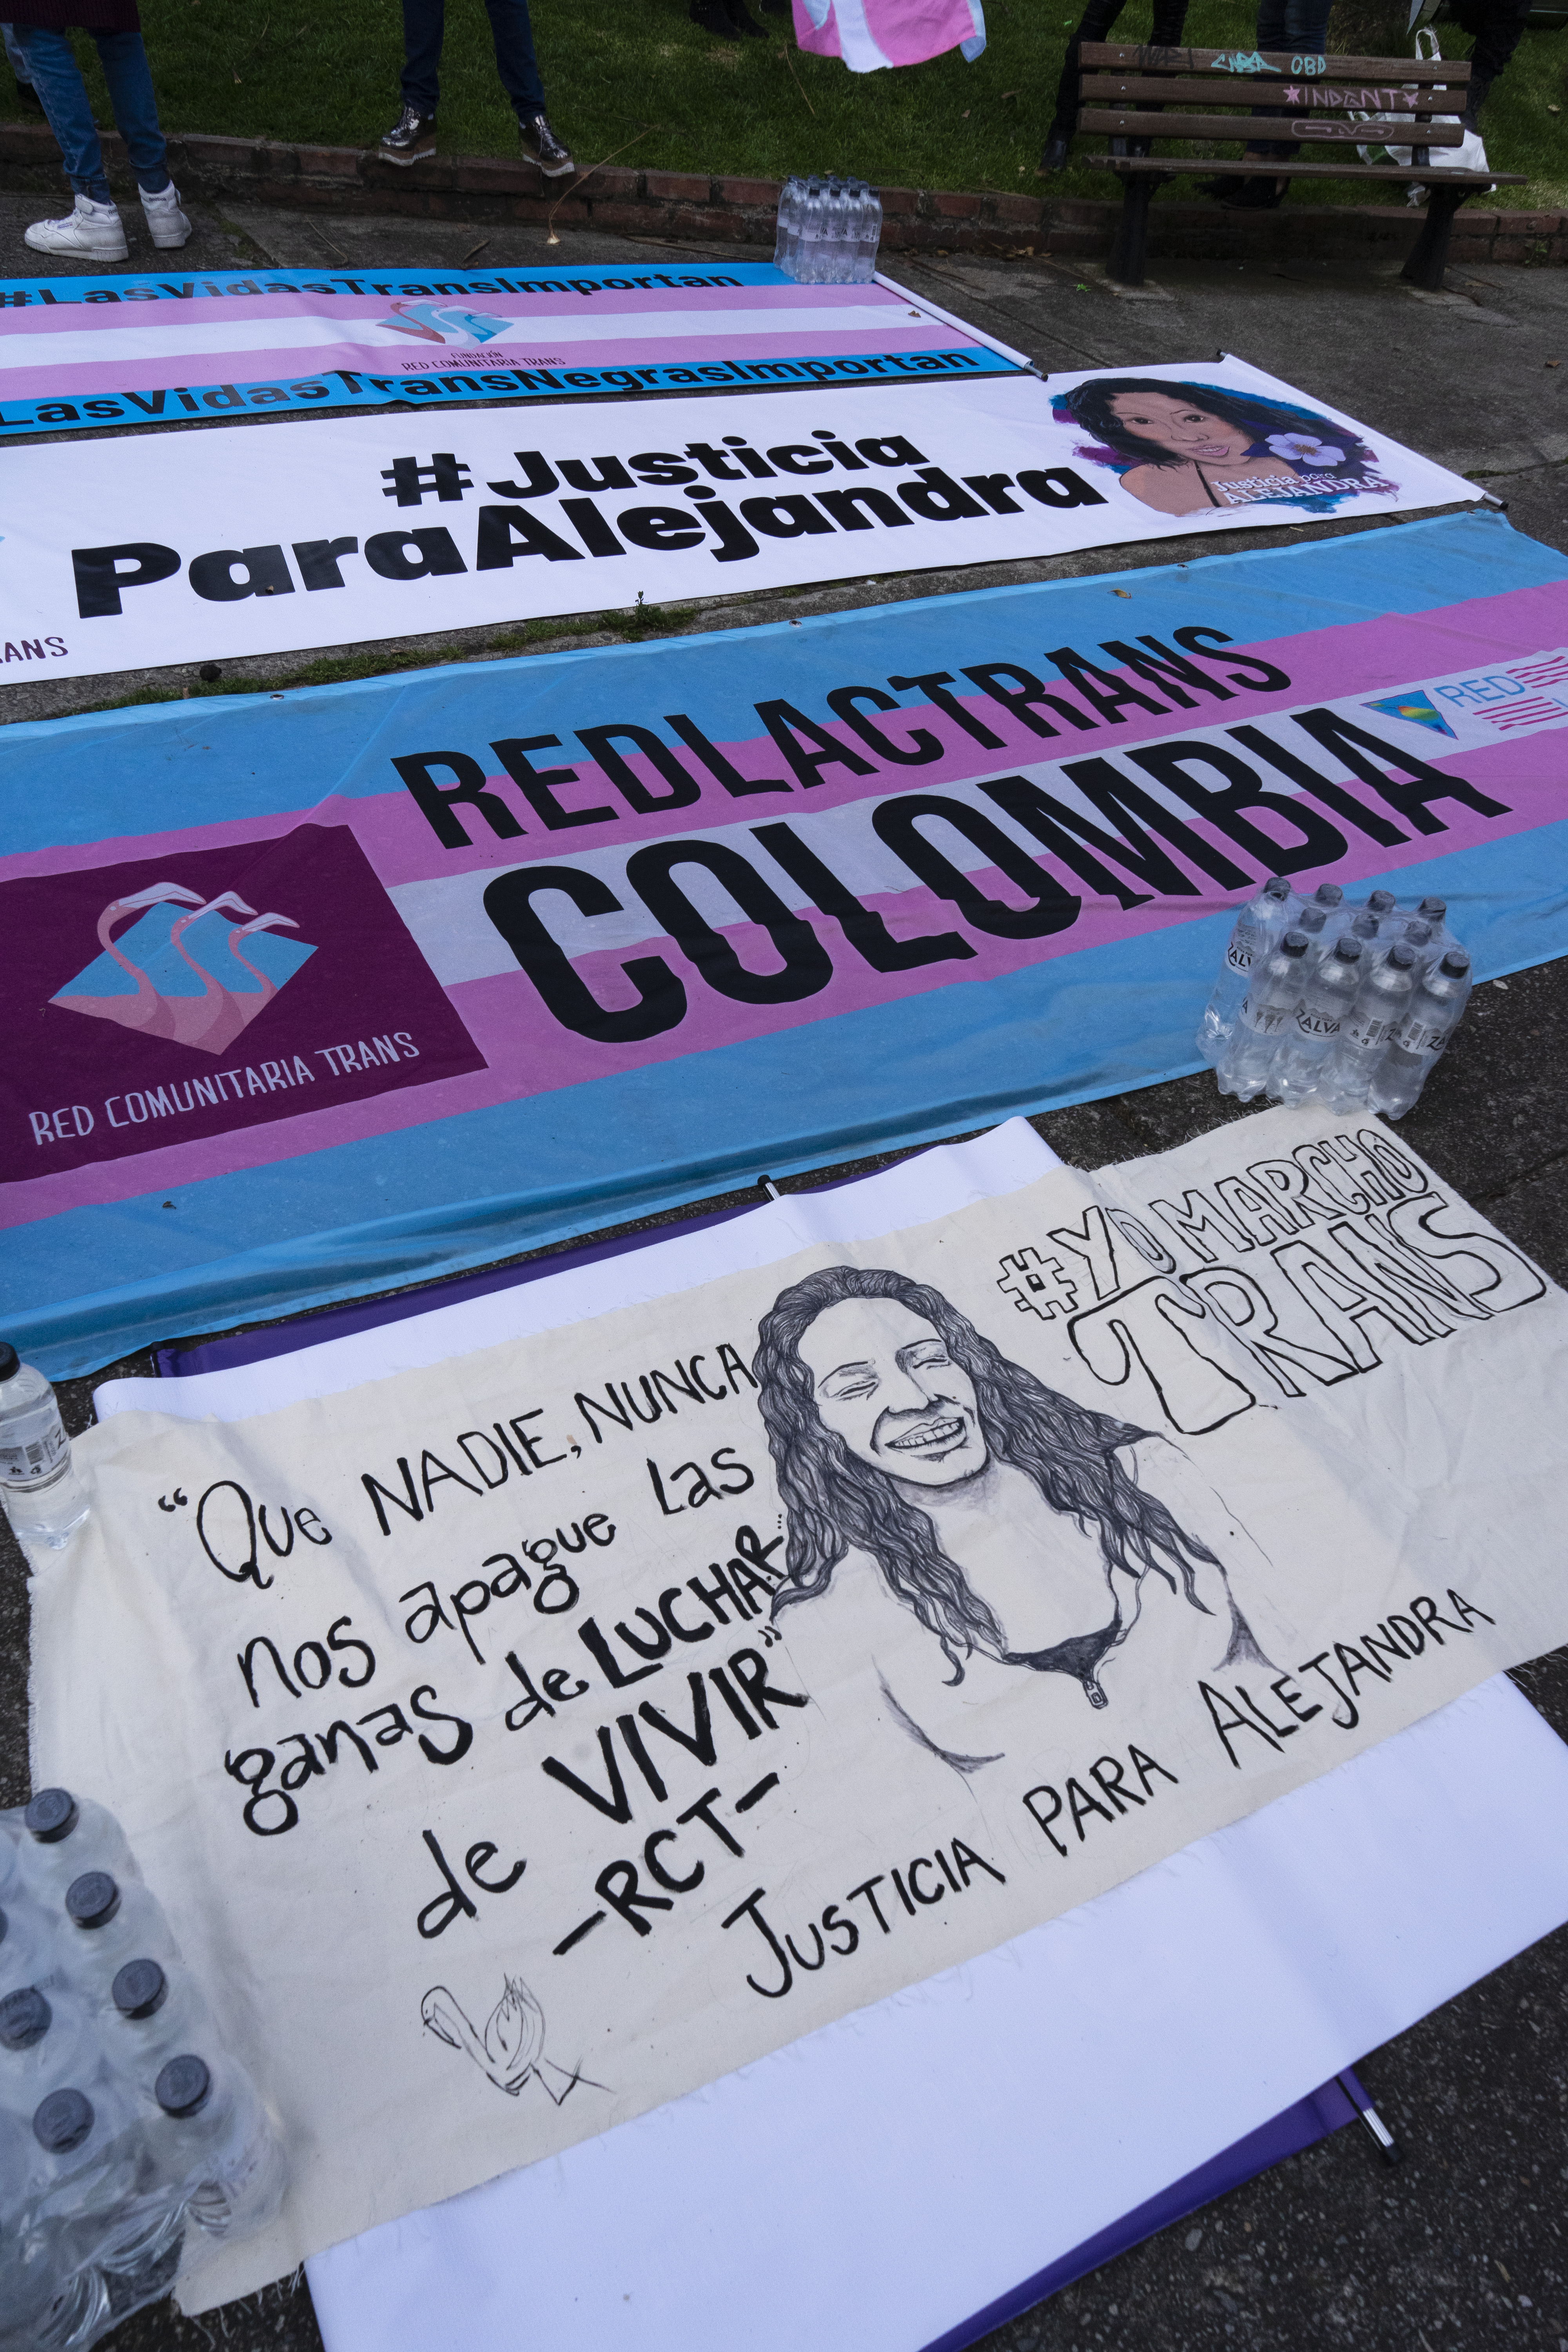 OBD
INDGNT
#LasVidasTransImportan
FUNDACIÓN
RED COMUNITARIA TRANS
LasVidasTransNegrasImportan
#Justicia
ParaAlejandra
Justicia por
ALEJANDRA
RANS
REDLACTRANS
COLOMBIA
RED
RED COMUNITARIA TRANS
ZALVA
#YO MARCHO
TRANS
“Que NADIE, NUNCA
nos apague las
ganas de LUCHAR...
de VIVIR”
-RCT-
JUSTICIA PARA ALEJANDRA